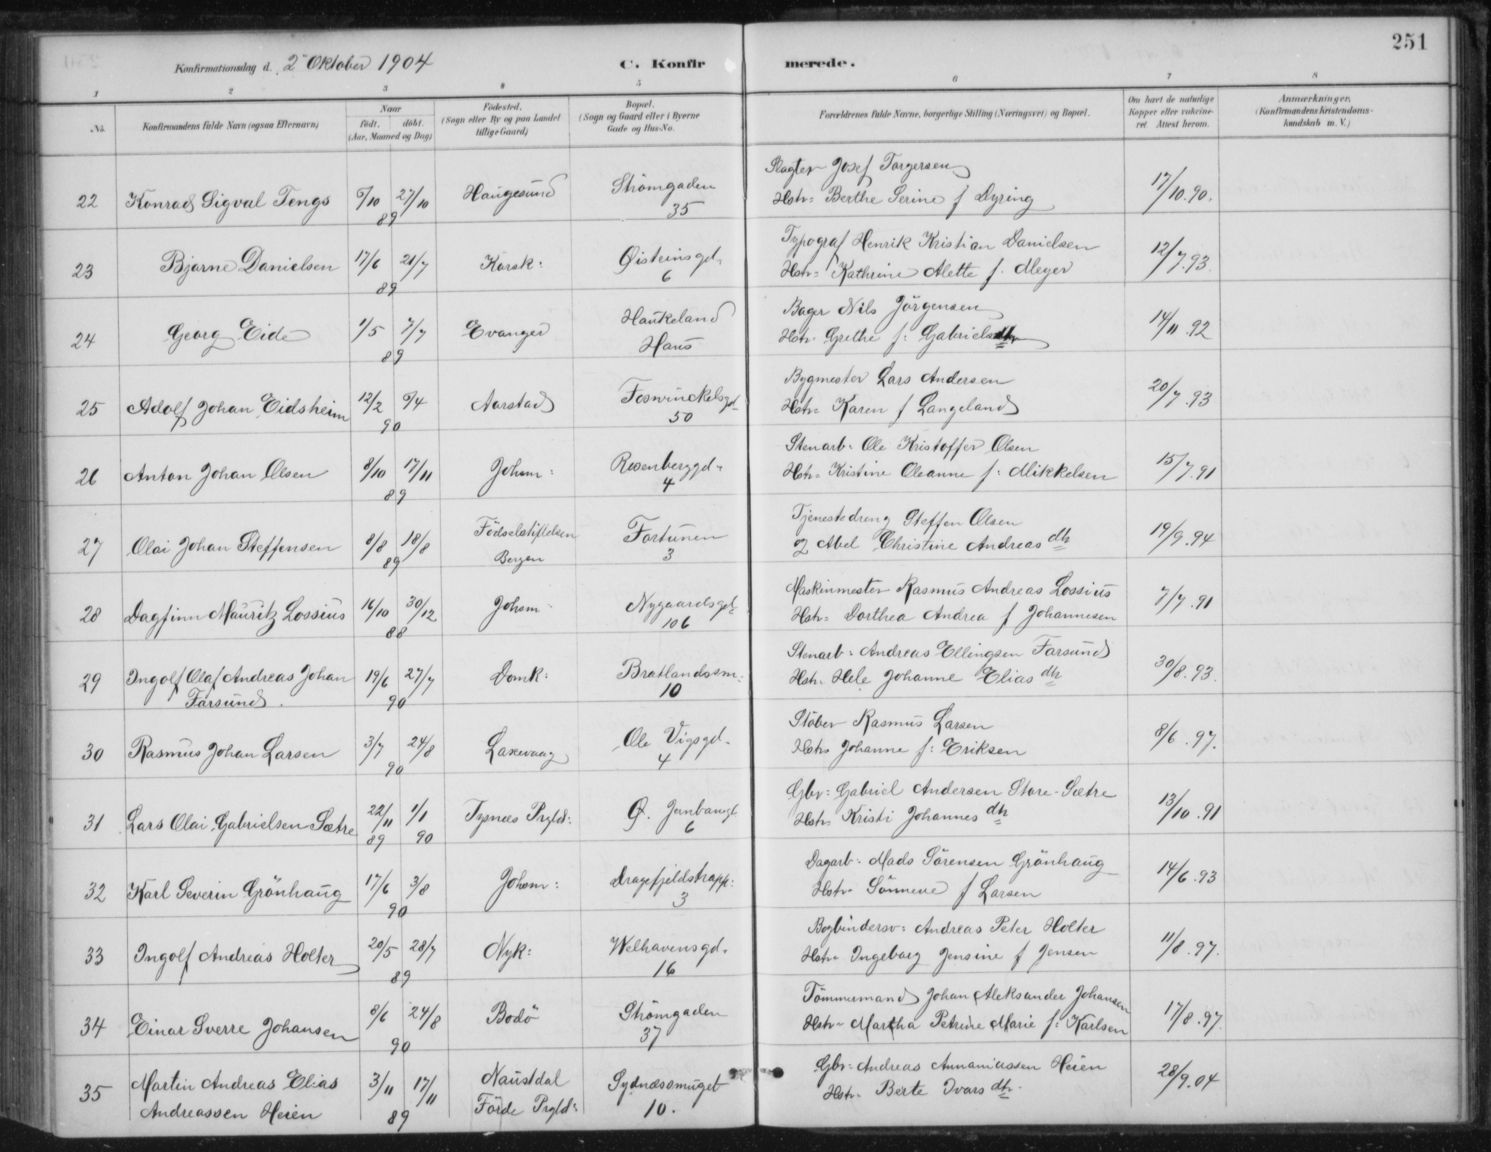 251
Konfirmationsdag d. 2 Oktober 1904
C. Konfirmerede.
1 2 3 4 5 6 7 8
No. Konfirmandens fulde Navn (ogsaa Efternavn) Naar født, døbt. (Aar, Maaned og Dag) Fødested. (Sogn eller By og paa Landet tillige Gaard) Bopæl. (Sogn og Gaard eller i Byerne Gade og Hus-No. Forældrenes fulde Navne, borgerlige Stilling (Næringsvei) og Bopæl. Om havt de naturlige Kopper eller vaccineret. Attest herom. Anmærkninger. (Konfirmandens Kristendomskundskab m. V.)
22 Konrad Sigval Tengs /10 27/10 89 Haugesund Strömgaden 35 Slagter Josef Torgersen Hstr: Berthe Serine f Dyring 17/10.90.
23 Bjarne Danielsen 17/6 21/7 89 Korsk: Øisteinsgd. 6 Typograf Henrik Kristian Danielsen Hstr: Kathrine Alette f. Meyer 12/7.93.
24 Georg Eide 1/5 7/7 89 Evanger Haukeland Haus Bager Nils Jörgensen Hstr. Grethe f: Gabrielsdtr 14/11.92
25 Adolf Johan Eidsheim 12/2 /4 90 Aarstad Foswinckelsgd. 50 Bygmester Lars Andersen Hstr: Karen f Langeland 20/7.93
26 Anton Johan Olsen 8/10 17/11 89 Johsm: Rosenberggd. 4 Stenarb. Ole Kristoffer Olsen Hstr. Kristine Oleanne f: Mikkelsen 15/7.91
27 Olai Johan Steffensen 8/8 18/8 89 Födselstiftelsen Bergen Fortunen 3 Tjenestedreng Steffen Olsen og Abel Christine Andreasdtr 19/9.94
28 Dagfinn Mauritz Lossius 16/10 30/12 88 Johsm. Nygaardsgd. 106 Maskinmester Rasmus Andreas Lossius Hstr: Dorthea Andrea f Johannesen 7/7.91
29 Ingolf Olaf Andreas Johan Farsund. 19/6 27/7 90 Domk: Bratlandssm. 10 Stenarb: Andreas Ellingsen Farsund Hstr. Hele Johanne Eliasdtr 30/8.93.
30 Rasmus Johan Larsen 3/7 24/8 90 Laxevaag Ole Vigsgd. 4 Stöber Rasmus Larsen Hstr. Johanne f: Eriksen 8/6.97.
31 Lars Olai Gabrielsen Sætre 22/11 89 1/1 90 Tysnæs Prgld: Ø. Jernbangt 6 Gbr: Gabriel Andersen Store-Sætre Hstr. Kristi Johannesdtr 13/10.91
32 Karl Severin Grönhaug 17/6 3/8 90 Johsm: Dragefjeldstrapp: 3 Dagarb. Mads Sörensen Grönhaug Hstr. Sönneve f Larsen 14/6.93
33 Ingolf Andreas Holter 20/5 28/7 89 Nyk: Welhavensgd. 16 Bogbindersv: Andreas Peter Holter Hstr. Ingeborg Jensine f Jensen 11/8.97.
34 Einar Sverre Johansen 8/6 24/8 90 Bodö Strömgaden 37 Tömmermand Johan Aleksander Johansen Hstr. Martha Petrine Marie f: Karlsen 17/8.97.
35 Martin Andreas Elias Andreassen Heien 3/11 17/11 89 Naustdal Förde Prgld: Sydnæssmuget 10. Gbr: Andreas Annaniassen Heien Hstr. Berte Ivarsdtr. 28/9.04